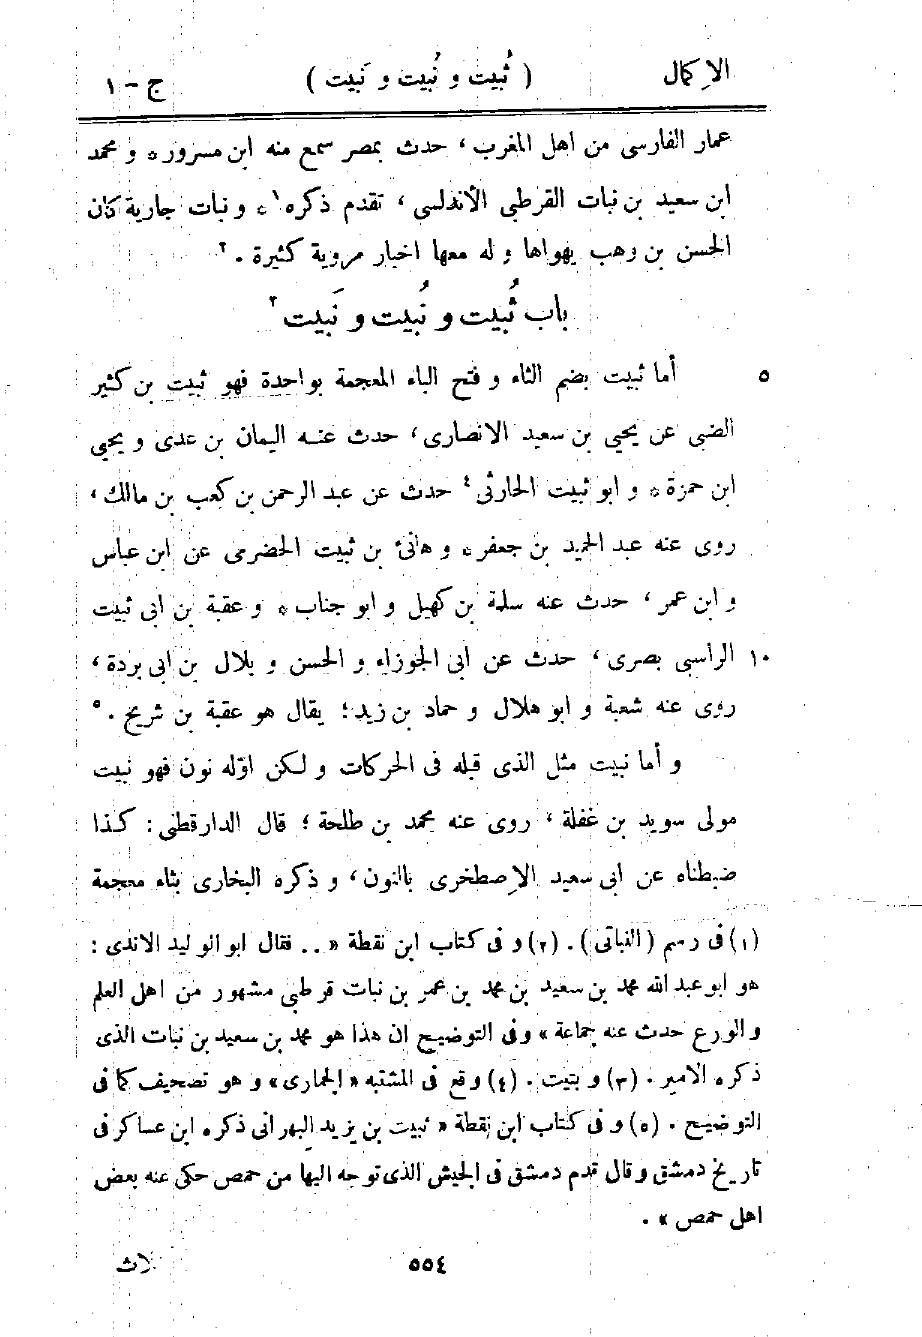 الإكمال ( ثُبيت و نُبيت و نَبيت ) ج - ١
عمار الفارسى من اهل المغرب ، حدث بمصر سمع منه ابن مسرور * و محمد
ابن سعيد بن نبات القرطبى الأندلسى ، تقدم ذكره ١ * و نبات جارية كان
الحسن بن وهب يهواها و له معها اخبار مروية كثيرة . ٢
باب ثُبيت و نُبيت و نَبيت ٣
٥ أما ثبيت بضم الثاء و فتح الباء المعجمة بواحدة فهو ثبيت بن كثير
الضبى عن يحيى بن سعيد الانصارى ، حدث عنه اليمان بن عدى و يحيى
ابن حمزة * و ابو ثبيت الحارثى ٤ حدث عن عبد الرحمن بن كعب بن مالك ،
روى عنه عبد الحميد بن جعفر * و هانئ بن ثبيت الحضرمى عن ابن عباس
و ابن عمر ، حدث عنه سلمة بن كهيل و ابو جناب * و عقبة بن ابى ثبيت
١٠ الراسبى بصرى ، حدث عن ابى الجوزاء و الحسن و بلال بن ابى بردة ،
روى عنه شعبة و ابو هلال و حماد بن زيد ؛ يقال هو عقبة بن شريح . ٥
و أما نبيت مثل الذى قبله فى الحركات و لكن اوّله نون فهو نبيت
مولى سويد بن غفلة ، روى عنه محمد بن طلحة ؛ قال الدارقطنى : كذا
ضبطناه عن ابى سعيد الإصطخرى بالنون ، و ذكره البخارى بثاء معجمة
(١) فى رسم (النباتى) . (٢) و فى كتاب ابن نقطة « .. فقال ابو الوليد الاندى :
هو ابو عبد الله محمد بن سعيد بن محمد بن عمر بن نبات قرطبى مشهور من اهل العلم
و الورع حدث عنه جماعة » وفى التوضيح ان هذا هو محمد بن سعيد بن نبات الذى
ذكره الامير . (٣) و بتيت . (٤) وقع فى المشتبه « الجمارى » و هو تصحيف كما فى
التوضيح . (٥) و فى كتاب ابن نقطة « ثبيت بن يزيد البهرانى ذكره ابن عساكر فى
تاريخ دمشق و قال قدم دمشق فى الجيش الذى توجه اليها من حمص حكى عنه بعض
اهل حمص » .
٥٥٤ ثلاث